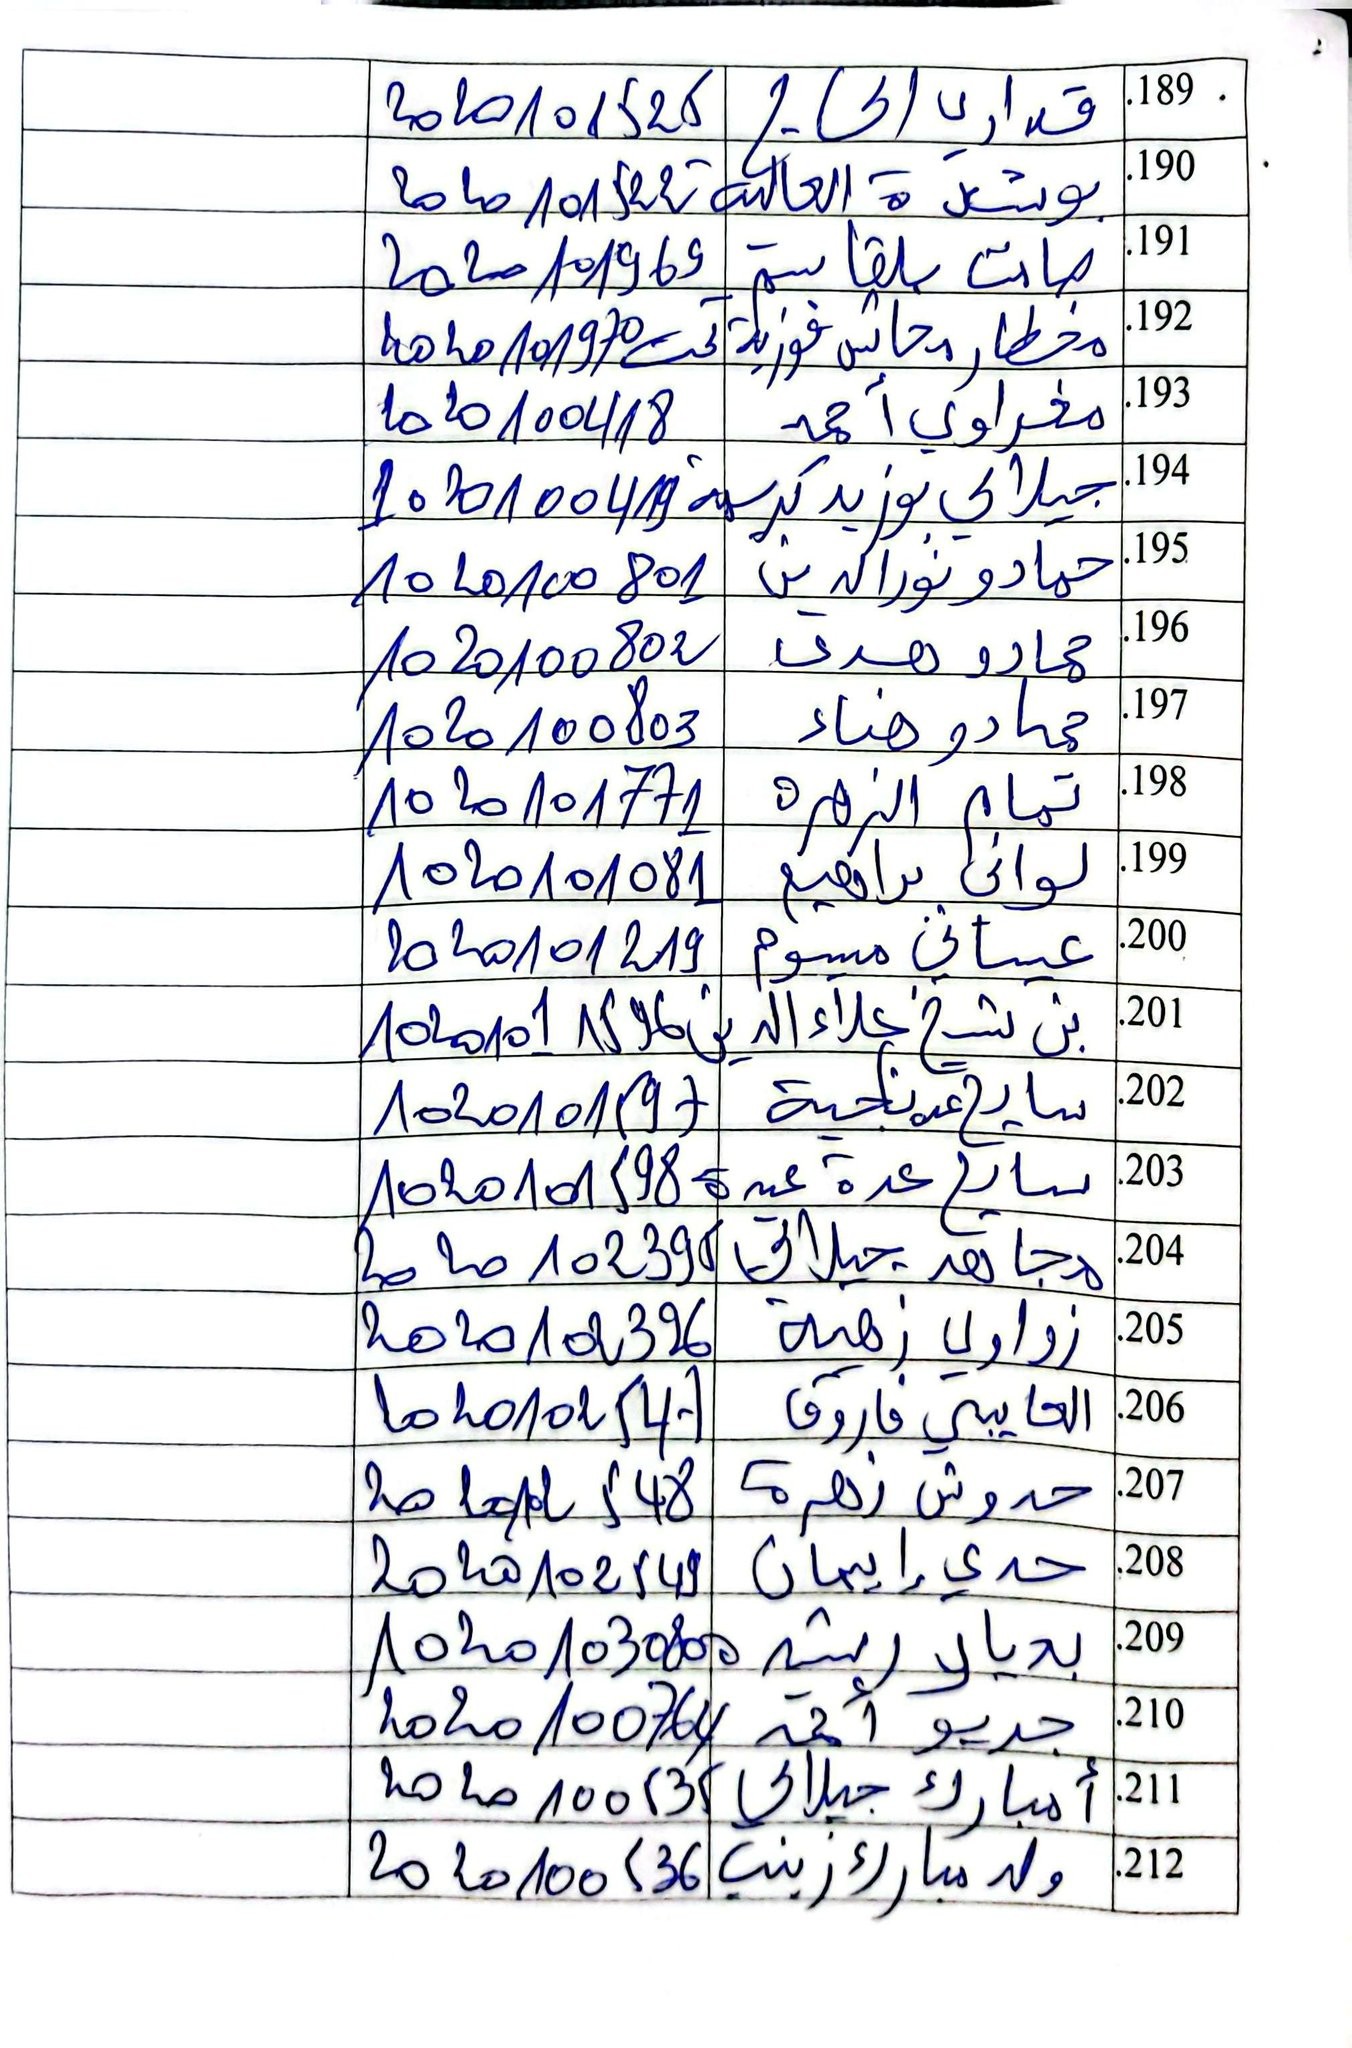 .189 قداري 2020101525
.190 بوشعرة العالية 2020101522
.191 صامت بلقاسم 2020101969
.192 مخطار محانش فوزية 2020101970
.193 مغراوي أحمد 2020100418
.194 جيلالي بوزيد كريمة 2020100419
.195 حمادو نورالدين 2020100801
.196 حمادو هدى 2020100802
.197 حمادو هناء 2020100803
.198 تمام الزهرة 2020101771
.199 لواني براهيم 2020101081
.200 عيساني ميسوم 2020101219
.201 بن شيخ علاء الدين 2020101596
.202 سايح عدة نجية 2020101597
.203 سايح عدة 2020101598
.204 مجاهد جيلالي 2020102395
.205 زواوي زهية 2020102396
.206 الحابيبي فاروق 2020102547
.207 حدوش زهرة 2020102548
.208 حدي إيمان 2020102549
.209 بديار 2020103080
.210 جديو أحمد 2020100764
.211 أمبارك جيلالي 2020100535
.212 ولد مبارك زينب 2020100536